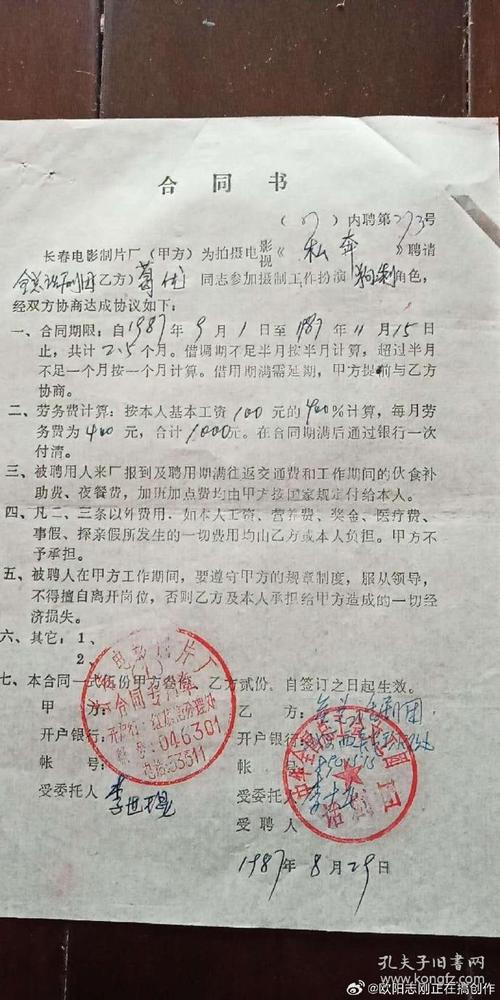 合同书
(87)内聘第273号
长春电影制片厂(甲方)为拍摄电影视《私奔》聘请
全总话剧团(乙方)葛优同志参加摄制工作扮演角色,
经双方协商达成协议如下:
一、合同期限:自1987年9月1日至1987年11月15日
止,共计2.5个月。借调期不足半月按半月计算,超过半月
不足一个月按一个月计算。借用期满需延期,甲方提前与乙方
协商。
二、劳务费计算:按本人基本工资100元的400%计算,每月劳
务费为400元,合计1000元。在合同期满后通过银行一次
付清。
三、被聘用人来厂报到及聘用期满往返交通费和工作期间的伙食补
助费、夜餐费,加班加点费均由甲方按国家规定付给本人。
四、凡二、三条以外费用,如本人工资、营养费、奖金、医疗费、
事假、探亲假所发生的一切费用均由乙方或本人负担。甲方不
予承担。
五、被聘人在甲方工作期间,要遵守甲方的规章制度,服从领导,
不得擅自离开岗位,否则乙方及本人承担给甲方造成的一切经
济损失。
六、其它:1、
2、
七、本合同一式伍份甲方叁份,乙方贰份,自签订之日起生效。
甲方:
开户银行:
帐号:
受委托人
电影制片厂
合同专用章
开户行:红旗街办理处
帐号:046301
电话:53311
乙方:全总话剧团
开户银行:
帐号:
受委托人
受聘人
话剧团
1987年8月29日
孔夫子旧书网
www.kongfz.com
@欧阳志刚正在搞创作